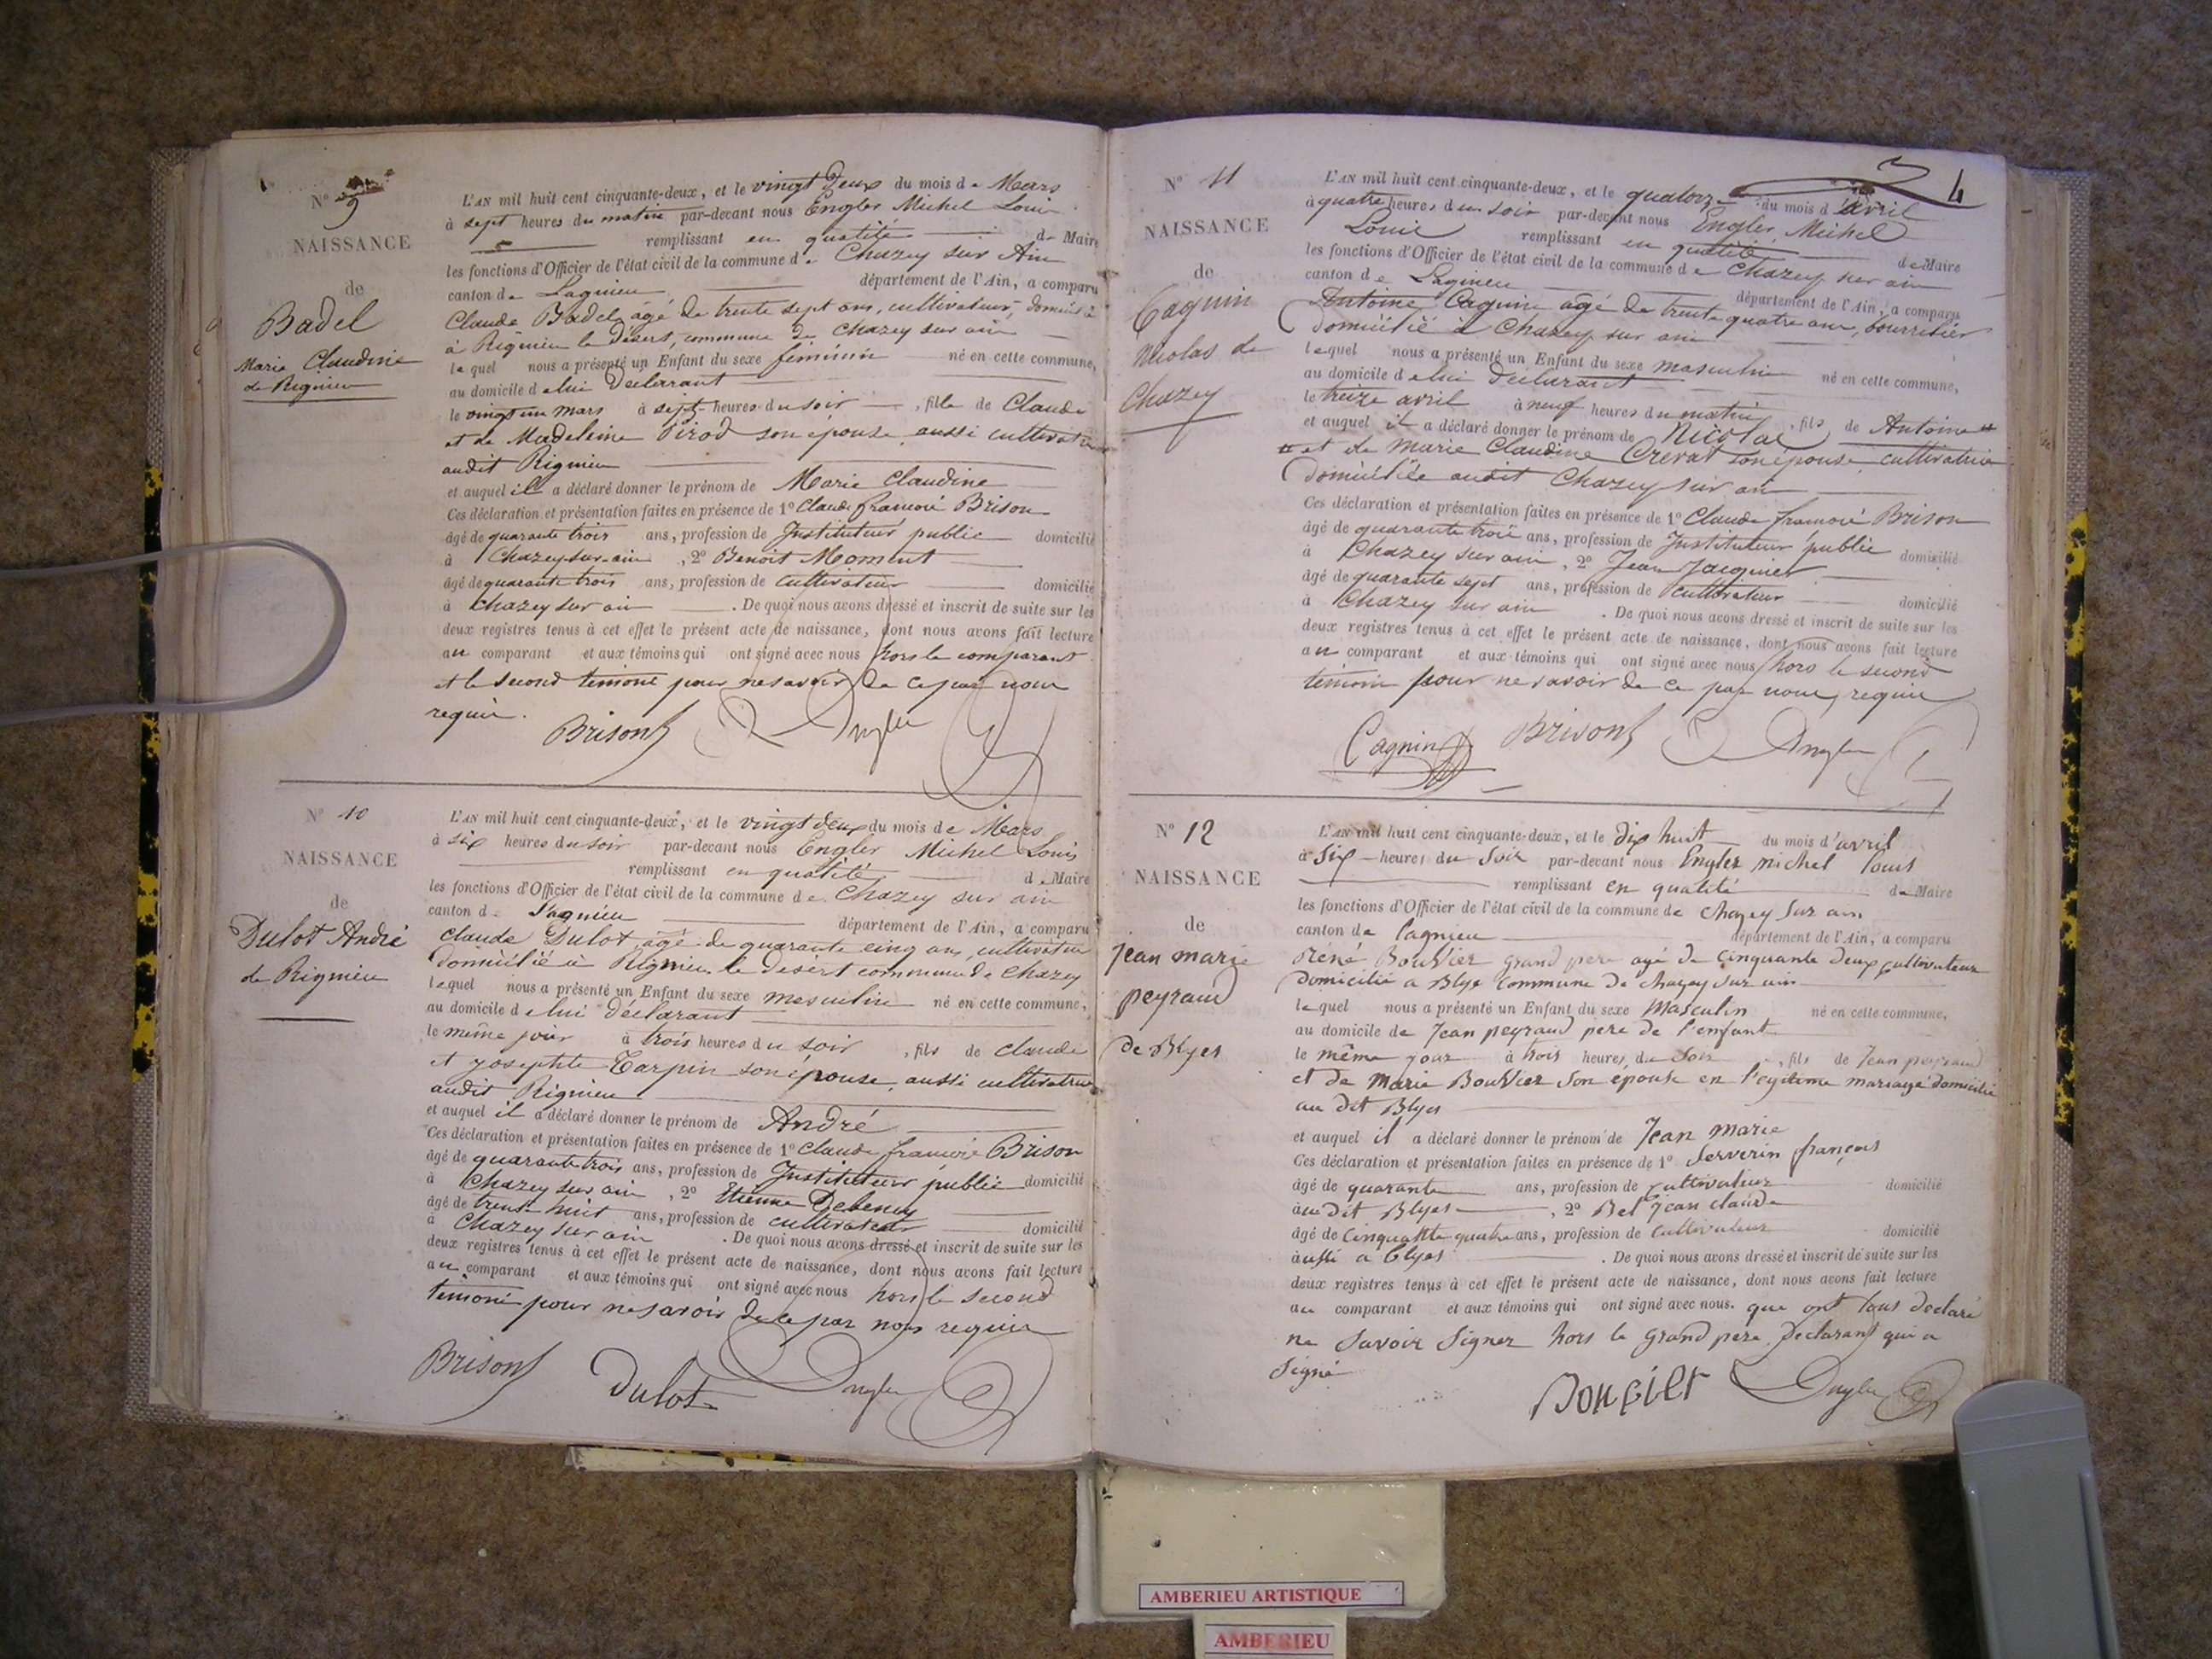 N° 9
NAISSANCE
de
Badel
Marie Claudine
de Rignieu
L'AN mil huit cent cinquante-deux, et le vingt deux du mois de Mars
à sept heures du matin par-devant nous Engler Michel Louis
remplissant en qualité de Maire
les fonctions d'Officier de l'état civil de la commune de Chazey sur Ain
canton de Lagnieu département de l'Ain, a comparu
Claude Badel, âgé de trente sept ans, cultivateur, domicilié
à Rignieu le Désert, commune de Chazey sur ain
lequel nous a présenté un Enfant du sexe féminin né en cette commune,
au domicile de lui déclarant
le vingt un mars à sept heures du soir, fille de Claude
et de Madeleine Pirod son épouse, aussi cultivatrice
audit Rignieu
et auquel il a déclaré donner le prénom de Marie Claudine
Ces déclaration et présentation faites en présence de 1° Claude françois Brison
âgé de quarante trois ans, profession de Instituteur public domicilié
à Chazey-sur-ain, 2° Benoit Moment
âgé de quarante trois ans, profession de cultivateur domicilié
à Chazey sur ain. De quoi nous avons dressé et inscrit de suite sur les
deux registres tenus à cet effet le présent acte de naissance, dont nous avons fait lecture
au comparant et aux témoins qui ont signé avec nous hors le comparant
et le second témoin pour ne savoir de ce par nous
requis.
Brison Engler
N° 10
NAISSANCE
de
Dulot André
de Rignieu
L'AN mil huit cent cinquante-deux, et le vingt deux du mois de Mars
à six heures du soir par-devant nous Engler Michel Louis
remplissant en qualité de Maire
les fonctions d'Officier de l'état civil de la commune de Chazey sur ain
canton de Lagnieu département de l'Ain, a comparu
Claude Dulot, âgé de quarante cinq ans, cultivateur
domicilié à Rignieu le désert commune de Chazey
lequel nous a présenté un Enfant du sexe masculin né en cette commune,
au domicile de lui déclarant
le même jour à trois heures du soir, fils de Claude
et Josephte Tarpin son épouse, aussi cultivatrice
audit Rignieu
et auquel il a déclaré donner le prénom de André
Ces déclaration et présentation faites en présence de 1° Claude françois Brison
âgé de quarante trois ans, profession de Instituteur public domicilié
à Chazey sur ain, 2° Etienne Debeney
âgé de trente huit ans, profession de cultivateur domicilié
à Chazey sur ain. De quoi nous avons dressé et inscrit de suite sur les
deux registres tenus à cet effet le présent acte de naissance, dont nous avons fait lecture
au comparant et aux témoins qui ont signé avec nous hors le second
témoin pour ne savoir de ce par nous requis
Brison Dulot Engler
4
N° 11
NAISSANCE
de
Cagnin
Nicolas de
Chazey
L'AN mil huit cent cinquante-deux, et le quatorze du mois d'avril
à quatre heures du soir par-devant nous Engler Michel
Louis remplissant en qualité de Maire
les fonctions d'Officier de l'état civil de la commune de Chazey sur ain
canton de Lagnieu département de l'Ain, a comparu
Antoine Cagnin âgé de trente quatre ans, bourrelier
domicilié à Chazey sur ain
lequel nous a présenté un Enfant du sexe masculin né en cette commune,
au domicile de lui déclarant
le treize avril à neuf heures du matin, fils de Antoine
et auquel il a déclaré donner le prénom de Nicolas
et de Marie Claudine Crevat son épouse cultivatrice
domiciliée audit Chazey sur ain
Ces déclaration et présentation faites en présence de 1° Claude françois Brison
âgé de quarante trois ans, profession de Instituteur public domicilié
à Chazey sur ain, 2° Jean Jacquier
âgé de quarante sept ans, profession de cultivateur domicilié
à Chazey sur ain. De quoi nous avons dressé et inscrit de suite sur les
deux registres tenus à cet effet le présent acte de naissance, dont nous avons fait lecture
au comparant et aux témoins qui ont signé avec nous hors le second
témoin pour ne savoir de ce par nous requis
Cagnin Brison Engler
N° 12
NAISSANCE
de
Jean marie
peyraud
de Blyes
L'AN mil huit cent cinquante-deux, et le dix huit du mois d'avril
à six heures du soir par-devant nous Engler michel louis
remplissant en qualité de Maire
les fonctions d'Officier de l'état civil de la commune de chazey sur ain
canton de lagnieu département de l'Ain, a comparu
réné Bouvier grand pere agé de cinquante deux cultivateur
domicilié a Blye commune de chazey sur ain
lequel nous a présenté un Enfant du sexe masculin né en cette commune,
au domicile de Jean peyraud pere de l'enfant
le même jour à trois heures du soir, fils de Jean peyraud
et de marie Bouvier son épouse en légitime mariage domicilié
au dit Blyes
et auquel il a déclaré donner le prénom de Jean marie
Ces déclaration et présentation faites en présence de 1° Serverin françois
âgé de quarante ans, profession de cultivateur domicilié
audit Blyes, 2° Bel Jean claude
âgé de cinquante quatre ans, profession de cultivateur domicilié
aussi a blyes. De quoi nous avons dressé et inscrit de suite sur les
deux registres tenus à cet effet le présent acte de naissance, dont nous avons fait lecture
au comparant et aux témoins qui ont signé avec nous. que ont tous declaré
ne savoir signer hors le grand pere declarant qui a
signé
Bouvier Engler
AMBERIEU ARTISTIQUE
AMBERIEU